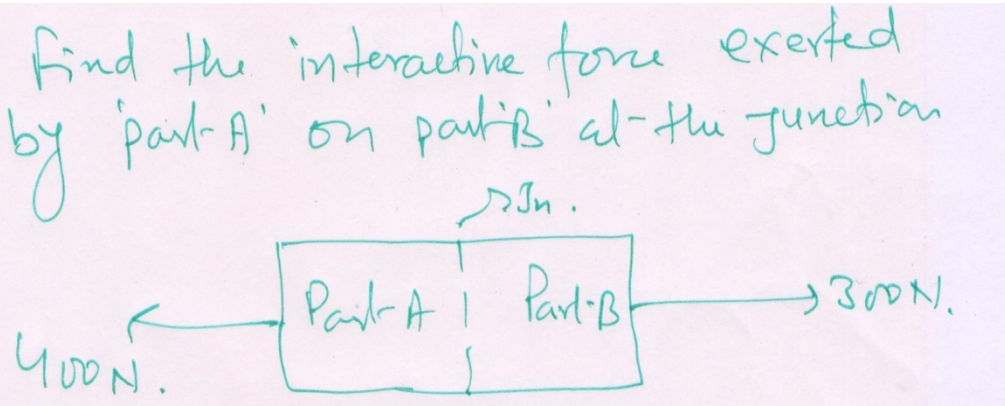 Find the interactive force exerted
by 'part-A' on part 'B' at-the Junction
Jn.
Part-A
Part-B
300N.
400N.